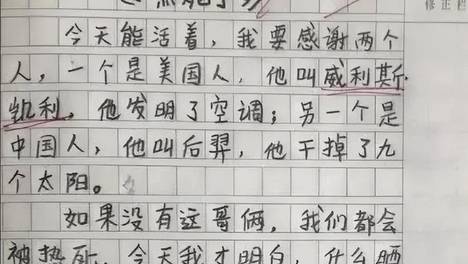 修正栏
今天能活着，我要感谢两个
人，一个是美国人，他叫威利斯·
凯利，他发明了空调；另一个是
中国人，他叫后羿，他干掉了九
个太阳。
如果没有这哥俩，我们都会
被热死，今天我才明白，什么晒